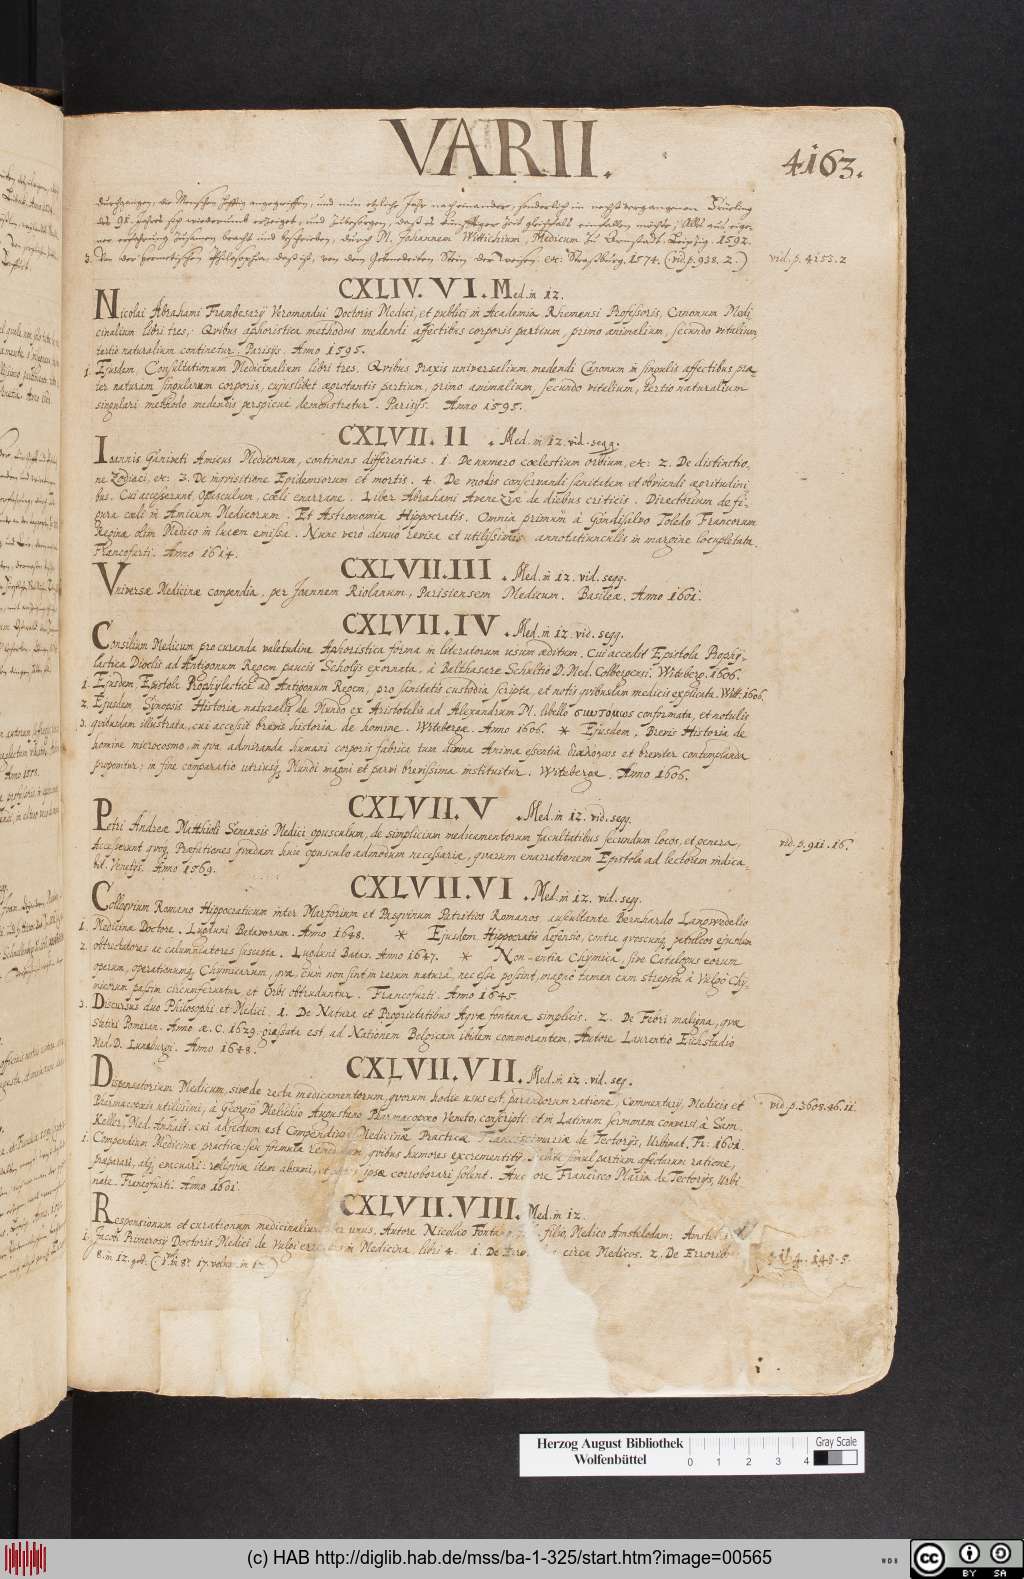 VARII.
4163.
durchgangen, die Menschen hefftig angegriffen, und nun etzliche Jahr nacheinander, sonderlich in nechst vorgangenen Früling
des 91. Jahres sich wiederumb erzeiget, und zubesorgen, daß es künfftiger Zeit gleichfalls einfallen möchte, Alles aus eige-
ner erfahrung zusamen bracht und beschrieben, durch M. Johannem Wittichium, Medicum zu Arnstadt. Leipzig. 1592.
3. Von der hermetischen Philosophia, das ist, von dem Gebenedeiten Stein der Weisen. &c: Straßburg. 1574. (vid. p. 938. 2.) vid. p. 4153. 2
CXLIV. VI. Med. in 12.
Nicolai Abrahami Frambesarij Veromandui Doctoris Medici, et publici in Academia Rhemensi Professoris, Canonum Medi
cinalium libri tres, Quibus aphoristica methodus medendi affectibus corporis partium, primo animalium, secundo vitalium,
tertio naturalium continetur. Parisijs. Anno 1595.
1. Ejusdem, Consultationum Medicinalium libri tres. Quibus Praxis universalium medendi Canonum in singulis affectibus præ
ter naturam singularum corporis, cujuslibet ægrotantis partium, primo animalium, secundo vitalium, tertio naturalium
singulari methodo medendis perspicue demonstratur. Parisijs. Anno 1595.
CXLVII. II. Med. in 12. vid. seqq.
Ioannis Ganiveti Amicus Medicorum, continens differentias. 1. De numero cœlestium orbium, &c: 2. De distinctio,
ne Zodiaci, &c: 3. De inquisitione Epidemiorum et mortis. 4. De modis conservandi sanitatem et obviandi ægritudini
bus. Cui accesserunt, opusculum, Cœli enarrant. Liber Abrahami Avenezræ de diebus criticis. Directorium de fi-
gura cœli in Amicum Medicorum. Et Astronomia Hippocratis. Omnia primùm à Gondisalvo Toledo Francorum
Regina olim Medico in lucem emissa. Nunc vero denuò revisa et utilissimis annotatiunculis in margine locupletata.
Francofurti. Anno 1614.
CXLVII. III. Med. in 12. vid. seqq.
Vniversæ Medicinæ compendia, per Joannem Riolanum, Parisiensem Medicum. Basileæ. Anno 1601.
CXLVII. IV. Med. in 12. vid. seqq.
Consilium Medicum pro curanda valetudine Aphoristica forma in literatorum usum æditum. Cui accedit Epistola Prophy-
lactica Dioclis ad Antigonum Regem paucis Scholijs exornata, à Balthasare Schultio D. Med. Colbergensi. Witeberg. 1606.
1. Ejusdem, Epistola Prophylactice ad Antigonum Regem, pro sanitatis custodia scripta, et notis quibusdam medicis explicata. Witt. 1606.
2. Ejusdem, Synopsis Historiæ naturalis de Mundo ex Aristotelis ad Alexandrum M. libello συντόμως conformata, et notulis
3. quibusdam illustrata, cui accessit brevis historia de homine. Witebergæ. Anno 1606. * Ejusdem, Brevis Historia de
homine microcosmo, in qua admiranda humani corporis fabrica tum divina Anima essentia διαλόγως et breviter contemplanda
proponitur; in fine comparatio utriusq; Mundi magni et parvi brevissima instituitur. Witebergæ. Anno 1606.
CXLVII. V. Med. in 12. vid. seqq.
Petri Andreæ Matthioli Senensis Medici opusculum, de simplicium medicamentorum facultatibus secundum locos, et genera, vid. p. 911. 16.
Accesserunt quoq; Præfationes quædam huic opusculo admodum necessariæ, quarum enarrationem Epistola ad lectorem indica-
bit. Venetijs. Anno 1569.
CXLVII. VI. Med. in 12. vid. seqq.
Colloquium Romano Hippocraticum inter Marforium et Pasquinum Patritios Romanos, auscultante Bernhardo Langwedelio
1. Medicinæ Doctore. Lugduni Batavorum. Anno 1648. * Ejusdem, Hippocratis defensio, contra quoscunq; publicos ejusdem
2. obtrectatores ac calumniatores suscepta. Lugduni Batav. Anno 1647. * Non-entia Chymica, sive Catalogus eorum
operum, operationumq; Chymicarum, quæ, cum non sint in rerum natura, nec esse possint, magno tamen cum strepitu à Vulgo Chy-
micorum passim circumferuntur, et Orbi obtruduntur. Francofurti. Anno 1645.
3. Discursus duo Philosophi et Medici. 1. De Natura et Proprietatibus Aquæ fontanæ simplicis. 2. De Febri maligna, quæ
Stetini Pomeran. Anno æ. C. 1629. grassata est, ad Nationem Belgicam ibidem commorantem, Autore Laurentio Eichstadio
Med. D. Lunæburgi. Anno 1648.
CXLVII. VII. Med. in 12. vid. seq.
Dispensatorium Medicum, sive de recta medicamentorum, quorum hodie usus est, parandorum ratione, Commentarij, Medicis et vid. p. 3608. 46. 11
Pharmacopœis utilissimi, a Georgio Melichio Augustano Pharmacopœo Veneto, conscripti et in Latinum sermonem conversi, à Sam.
Keller, Med. Anhalt. cui adjectum est Compendium Medicinæ Practicæ Francisci mariæ de Tectorijs, Urbinat. Fr: 1601.
1. Compendium Medicinæ practicæ, seu formula remediorum, quibus humores excrementitij, simul partium affectarum ratione,
præparari, atq; evacuari: reliquiæ item absumi, et ipsæ corroborari solent. Autore Francisco Maria de Tectorijs, Urbi
nate. Francofurti. Anno 1601.
CXLVII. VIII. Med. in 12.
Responsionum et curationum medicinalium liber unus, Autore Nicolao Fontano, filio, Medico Amstelodam: Amstel
1. Jacobi Primerosij Doctoris Medici de Vulgi erroribus in Medicina, libri 4. 1. De Erro circa Medicos. 2. De Erroribus 4. 148. 5.
8. in 12. geb.
Herzog August Bibliothek
Wolfenbüttel
0 1 2 3 4
Gray Scale
(c) HAB http://diglib.hab.de/mss/ba-1-325/start.htm?image=00565
WDB
cc
BY SA